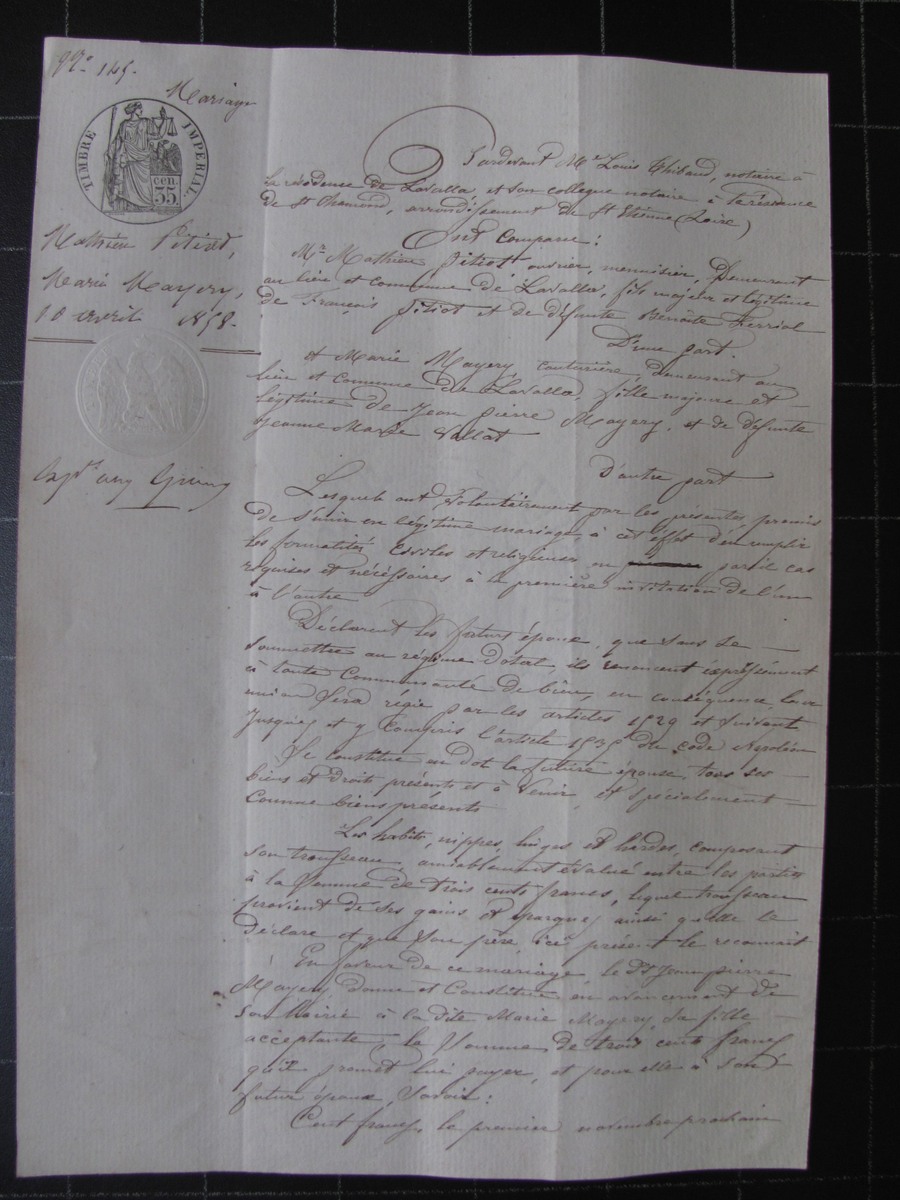 N.º 145.
Mariage
TIMBRE IMPERIAL.
35 cen.
Mathieu Pitiot,
Marie Mayery,
10 avril 1858.
Pardevant Me Louis Thibaud, notaire à
la résidense de Lavalla, et son collègue notaire à la résidence
de St Chamond, arrondissement de St Etienne (Loire)
Ont comparu:
Mr Mathieu Pitiot ouvrier, menuisier, demeurant
au lieu et commune de Lavalla, fils majeur et légitime
de François Pitiot et de défunte Benoite Ferriol
D'une part.
Et Marie Mayery, couturière, demeurant au
lieu et commune de Lavalla, fille majeure et
légitime de Jean pierre Mayery, et de défunte
Jeanne Marie Vallat
D'autre part
Lesquels ont volontairement par les présentes promis
de s'unir en légitime mariage, à cet effet d'en remplir
les formalités civiles et religieuses en pareil cas
requises et nécessaires à la première invitation de l'un
à l'autre
Déclarent les futurs époux, que sans se
soumettre au régime dotal, ils renoncent expressément
à toute communauté de biens, en conséquence, leur
union sera régie par les articles 1529 et suivant
jusques et y compris l'article 1535 du code Napoléon
Se constitue en dot la future épouse, tous ses
biens et droits présents et à venir, et spécialement
comme biens présents
Les habits, nippes, linges et hardes, composant
son trousseau, amiablement évalué entre les parties
à la somme de trois cents francs, lequel trousseau
provient de ses gains et épargnes ainsi qu'elle le
déclare et que son père, ici présent le reconnait
En faveur de ce mariage, le dt Jean pierre
Mayery donne et constitue en avancement de
son hoirie à la dite Marie Mayery, sa fille
acceptante, la somme de trois cents francs
qu'il promet lui payer, et pour elle à son
futur époux, savoir:
Cent francs, le premier novembre prochain